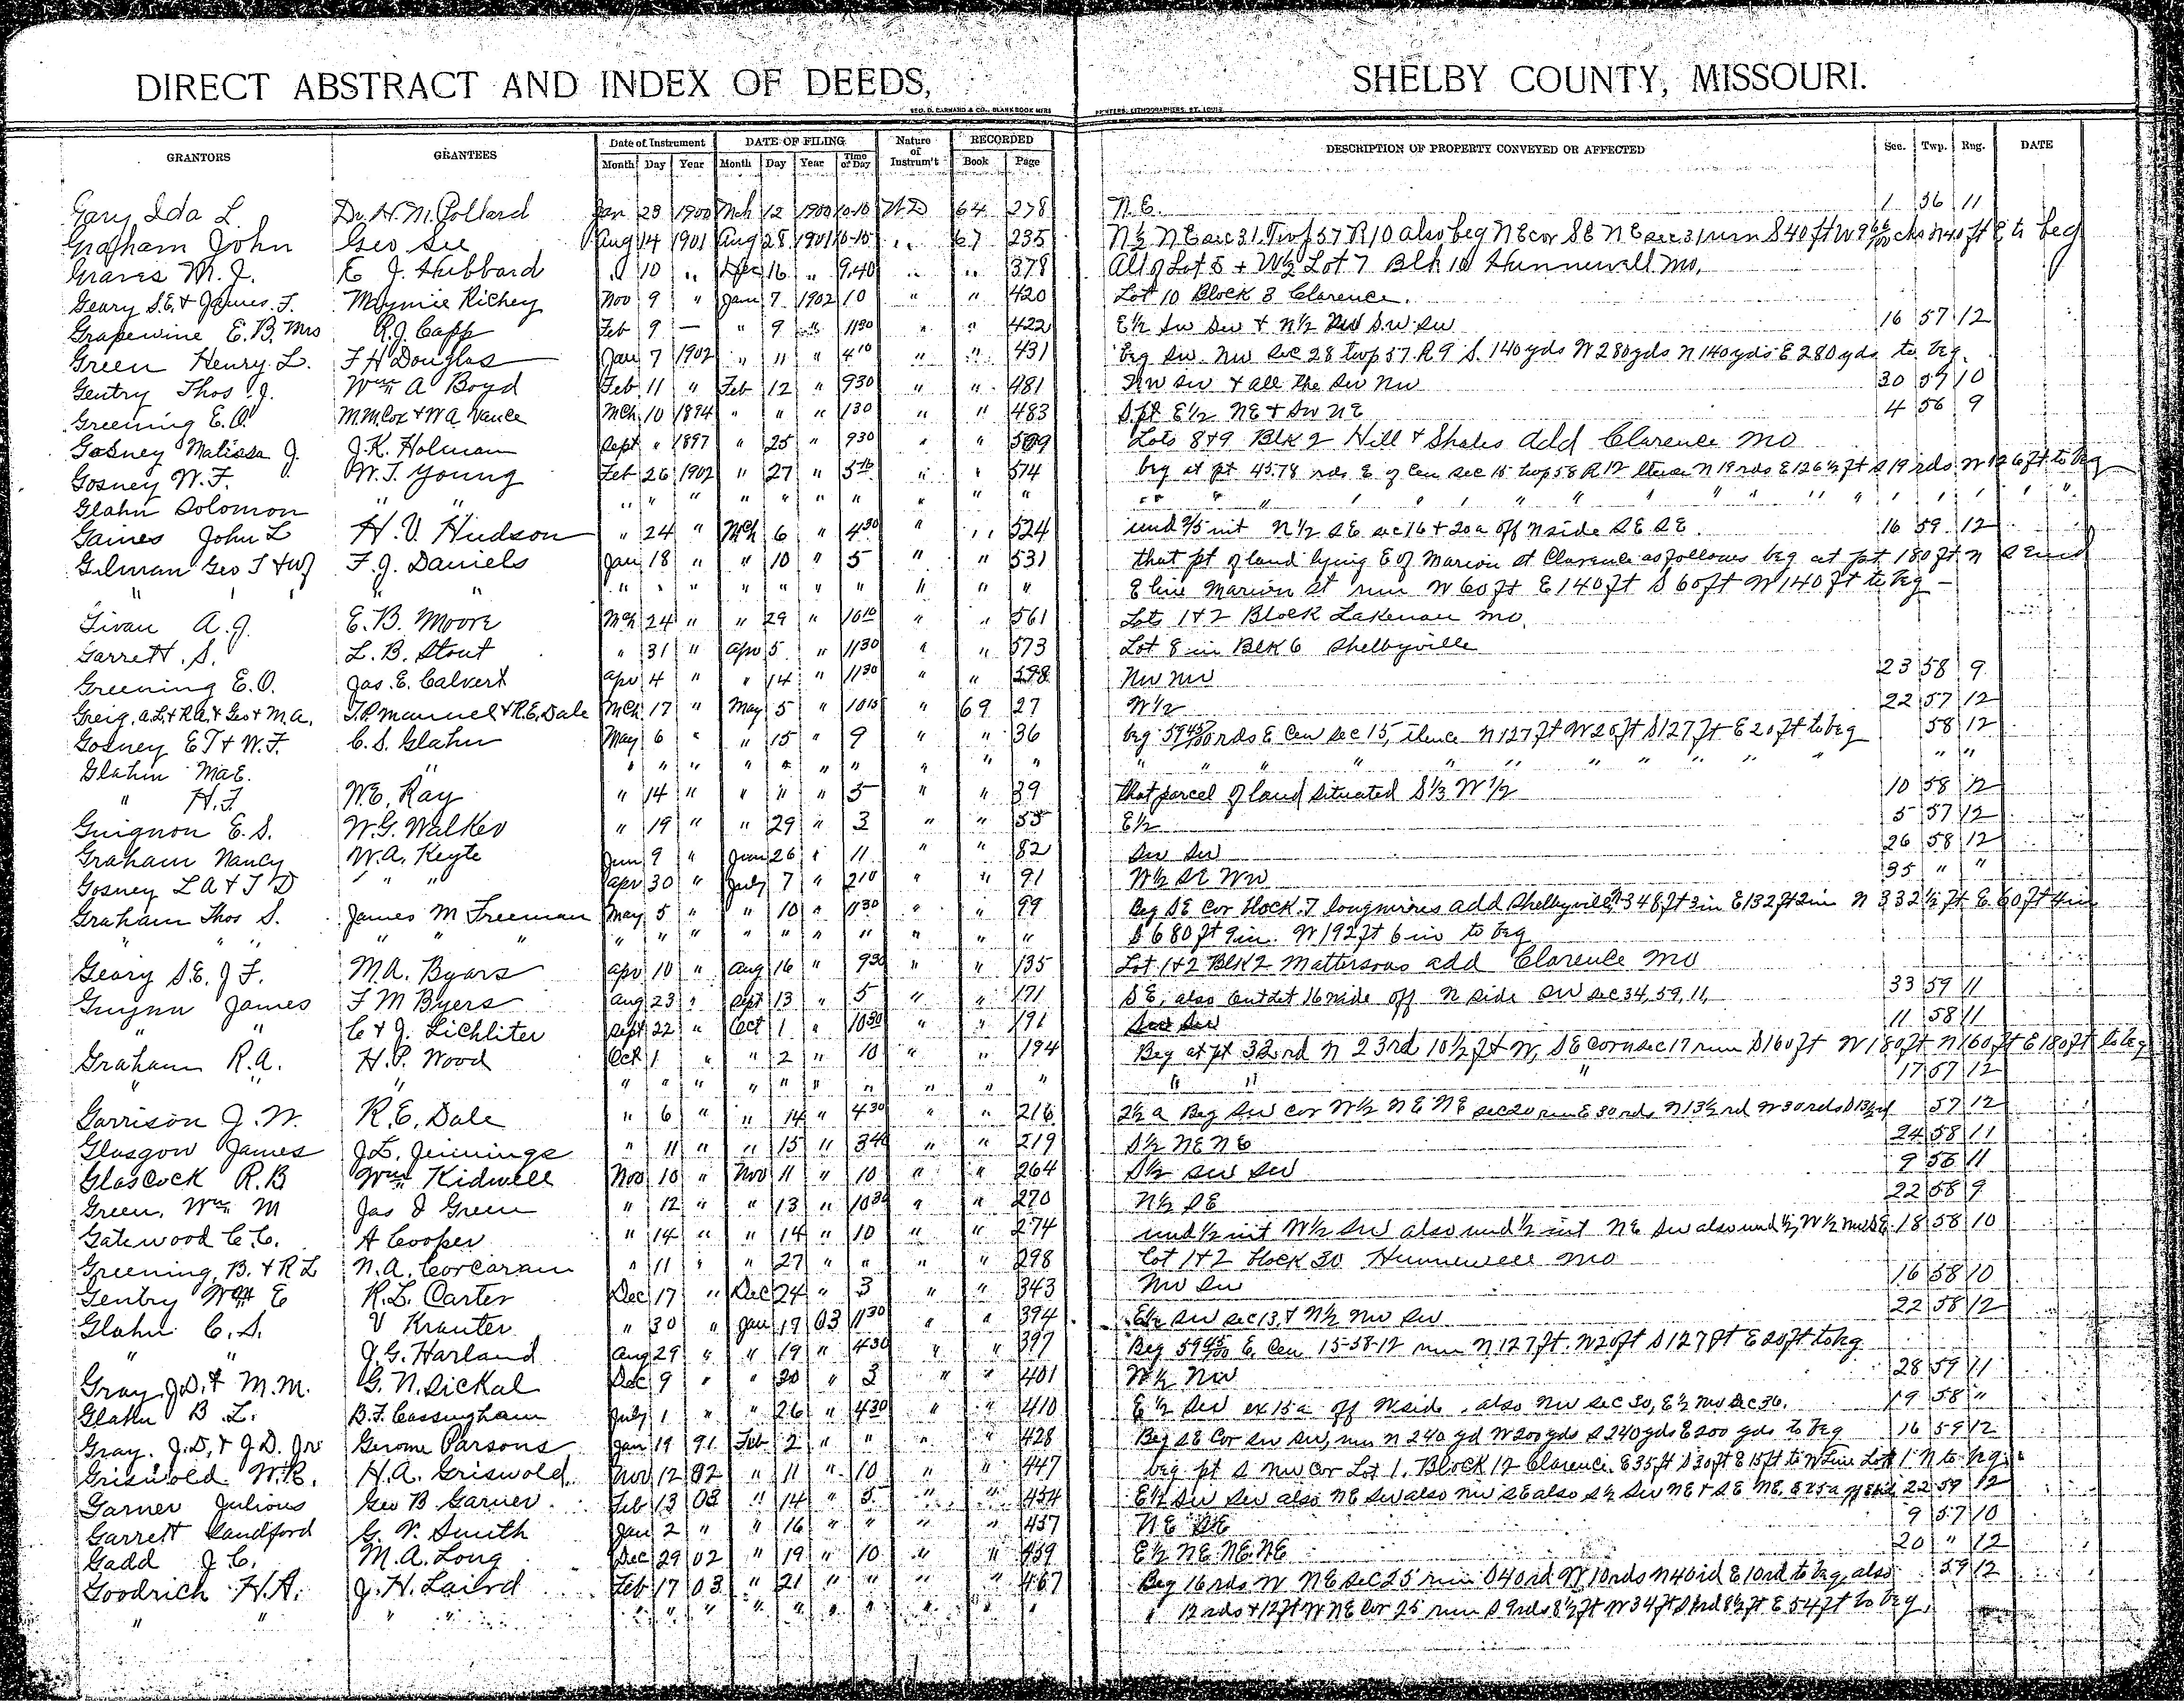 DIRECT ABSTRACT AND INDEX OF DEEDS, SHELBY COUNTY, MISSOURI.
GEO. D. BARNARD & CO., BLANK BOOK MFRS PRINTERS, LITHOGRAPHERS, ST. LOUIS
GRANTORS GRANTEES Date of Instrument DATE OF FILING Nature of Instrum't RECORDED DESCRIPTION OF PROPERTY CONVEYED OR AFFECTED Sec. Twp. Rng. DATE
Month Day Year Month Day Year Time of Day Book Page
Gary Ida L. Dr. H. M. Pollard Jan 23 1900 Mch 12 1900 10-10 WD 64 278 N.E. 1 56 11
Graham John Geo See Aug 14 1901 Aug 28 1901 10-15 " 67 235 N½ NE sec 31 Twp 57 R10 also beg NE cor SE NE sec 31 run S 40 ft W 9 chs N 40 ft E to beg
Graves M. J. E J. Hubbard " 10 " Dec 16 " 9.40 " " 378 All of Lot 8 + W½ Lot 7 Blk 10 Hunnewell Mo.
Geary S.E. & James F. Maymie Richey Nov 9 " Jany 7 1902 10 " " 420 Lot 10 Block 3 Clarence.
Grapewine E. B. Mrs R.J. Capp Feb 9 — " 9 " 11 30 " " 422 E½ SW SW + N½ NW SW SW 16 57 12
Green Henry L. F H Douglas Jan 7 1902 " 11 " 4 10 " " 431 beg SW NW Sec 28 twp 57 R 9 S. 140 yds W 280 yds N 140 yds E 280 yds to beg.
Gentry Thos J. Wm A Boyd Feb 11 " Feb 12 " 9 30 " " 481 NW SW + all the SW NW 30 57 10
Greening E. O. M.M. Cox & W A Vance Mch 10 1894 " " " 1 30 " " 483 S pt E½ NE + SW NE 4 56 9
Gosney Malissa J. J.K. Holman Sept " 1897 " 25 " 9 30 " " 509 Lots 8 & 9 Blk 2 Hill & Shales add Clarence Mo
Gosney W. F. W. T. Young Feb 26 1902 " 27 " 3 " " 574 beg at pt 45.78 rds E of Cen sec 15 twp 58 R 12 thence N 19 rds E 126½ ft S 19 rds W 126 ft to beg
Glahn Solomon " " " " " " " " " " " "
Gaines John L H. V. Hudson " 24 " Mch 6 " 4 30 " " 524 und 2/5 int N½ SE sec 16 + 20a off N side SE SE 16 59 12
Gilman Geo T & Wf F. J. Daniels Jan 18 " " 10 " 5 " " 531 that pt of land lying E of Marion st Clarence as follows beg at pt 180 ft N S End
" " " " " " " " " " " " E line Marion St run W 60 ft E 140 ft S 60 ft W 140 ft to beg —
Givan A. J. E. B. Moore Mch 24 " " 29 " 10 10 " " 561 Lots 1 & 2 Block Lakenan Mo.
Garrett S. L. B. Stout " 31 " Apr 5 " 11 30 " " 573 Lot 8 in Blk 6 Shelbyville
Greening E. O. Jas. E. Calvert Apr 4 " " 14 " 11 30 " " 598 NW NW 23 58 9
Greig, A.L. & R.A. & Geo & M.A. T.P. Manuel & R.E. Dale Mch 17 " May 5 " 10 15 69 27 W½ 22 57 12
Gosney E T & W. F. C. S. Glahn May 6 " " 15 " 9 " " 36 beg 59 45/100 rds E Cen Sec 15, thence N 127 ft W 20 ft S 127 ft E 20 ft to beg 58 12
Glahn Ma E. " " " " " " " " " " " " "
" H. F. W.E. Ray " 14 " " " " 5 " " 39 that parcel of land situated S⅓ W½ 10 58 12
Guignon E. S. W.G. Walker " 19 " " 29 " 3 " " 55 E½ 5 57 12
Graham Nancy W.A. Keyte Jun 9 " June 26 " 11 " " 82 SW SW 26 58 12
Gosney L A & T D " " Apr 30 " July 7 " 2 10 " " 91 W½ SE NW 35 " "
Graham Thos S. James M Freeman May 5 " " 10 " 11 30 " " 99 Beg SE Cor block 7 longmires add Shelbyville N 348 ft 3 in E 132 ft 2 in N 332½ ft E 60 ft 4 in
" " " " " " " " " " " " " S 680 ft 9 in. W 192 ft 6 in to beg
Geary S.E. J F. M.A. Byars Apr 10 " Aug 16 " 9 30 " " 135 Lot 1 & 2 Blk 2 Mattersons add Clarence Mo
Guynn James F M Byers Aug 23 " Sept 13 " 5 " " 171 SE, also off N side SW sec 34, 59, 11, 33 59 11
" " C & J. Lichliter Sept 22 " Oct 1 " 10 30 " " 191 SW SW 11 58 11
Graham R.A. H.P. Wood Oct 1 " " 2 " 10 " " 194 Beg at pt 32 rd N 23 rd 10½ ft W, SE corn sec 17 run S 160 ft W 180 ft N 160 ft E 180 ft to beg
" " " " " " " " " " " " " " " 17 57 12
Garrison J. W. R.E. Dale " 6 " " 14 " 4 30 " " 216 2½ a Beg SW cor W½ NE NE sec 20 run E 30 rds N 13½ rd W 30 rds S 13½ rd 57 12
Glasgow James J.L. Jennings " 11 " " 15 " 3 40 " " 219 S½ NE NE 24 58 11
Glascock R. B Wm Kidwell Nov 10 " Nov 11 " 10 " " 264 S½ SW SW 9 56 11
Green, Wm M Jas I Green " 12 " " 13 " 10 30 " " 270 N½ SE 22 58 9
Gatewood C. C. A Cooper " 14 " " 14 " 10 " " 274 und ½ int W½ SW also und ½ int NE SW also und ½ W½ NW SE 18 58 10
Greening, B. & R L N. A. Corcaran " 11 " " 27 " " " " 298 Lot 1 & 2 block 30 Hunnewell Mo
Gentry Wm E R.L. Carter Dec 17 " Dec 24 " 3 " " 343 NW SW 16 58 10
Glahn C. S. V Krauter " 30 " Jan 19 03 11 30 " " 394 E½ SW sec 13, & N½ NW SW 22 58 12
" " J. G. Harland Aug 29 " " 19 " 4 30 " " 397 Beg 59 45/100 E. Cen 15-58-12 run N 127 ft. W 20 ft S 127 ft E 20 ft to beg
Gray, J.D. & M.M. G. N. Sickal Dec 9 " " 20 " 3 " " 401 W½ NW 28 59 11
Glahn B L. B.F. Cassingham July 1 " " 26 " 4 30 " " 410 E½ SW ex 15 a off N side, also NW Sec 30, E½ NW Sec 36. 19 58 "
Gray. J.D, & J D. Jr. Gerome Parsons Jan 19 91 Feb 2 " " " " 428 Beg SE Cor SW SW, run N 240 yd W 200 yds S 240 yds E 200 yds to beg 16 59 12
Griswold W.R. H.A. Griswold Nov 12 02 " 11 " 10 " " 447 beg pt S NW Cor Lot 1, Block 12 Clarence. E 35 ft S 30 ft E 15 ft to W Line Lot 1 N to beg.
Garner Julious Geo B Garner Feb 13 03 " 14 " 5 " " 454 E½ SW SW also NE SW also NW SE also S½ SW NE & SE NE, 22 59 12
Garrett Sandford G. V. Smith Jan 2 " " 16 " " " " 457 NE SE 9 57 10
Gadd J C. M. A. Long Dec 29 02 " 19 " 10 " " 459 E½ NE NE NE 20 " 12
Goodrich H.A. J. H. Laird Feb 17 03 " 21 " " " " 467 Beg 16 rds W NE Sec 25 run S 40 rd W 10 rds N 40 rd E 10 rd to beg, also 59 12
" " " " " " " " " " " " " " 12 rds & 12 ft W NE Cor 25 run S 9 rds 8½ ft W 34 ft 8½ ft E 54 ft to beg,